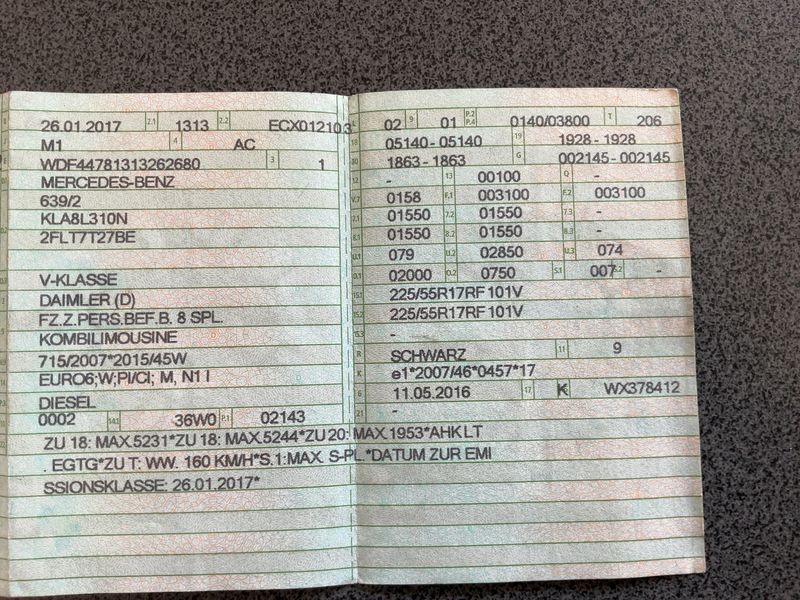 26.01.2017 2.1 1313 2.2 ECX012103
M1 4 AC
WDF44781313262680 3 1
MERCEDES-BENZ
639/2
KLA8L310N
2FLT7T27BE
V-KLASSE
DAIMLER (D)
FZ.Z.PERS.BEF.B. 8 SPL.
KOMBILIMOUSINE
715/2007*2015/45W
EURO6;W;PI/CI; M, N1 I
DIESEL
0002 14.1 36W0 P.1 02143
ZU 18: MAX.5231*ZU 18: MAX.5244*ZU 20: MAX.1953*AHK LT
. EGTG*ZU T: WW. 160 KM/H*S.1:MAX. S-PL.*DATUM ZUR EMI
SSIONSKLASSE: 26.01.2017*
L 02 9 01 P.2 P.4 0140/03800 T 206
18 05140 - 05140 19 1928 - 1928
20 1863 - 1863 G 002145 - 002145
12 - 13 00100 Q -
V.7 0158 F.1 003100 F.2 003100
7.1 01550 7.2 01550 7.3 -
8.1 01550 8.2 01550 8.3 -
U.1 079 U.2 02850 U.3 074
O.1 02000 O.2 0750 S.1 007 S.2 -
15.1 225/55R17RF 101V
15.2 225/55R17RF 101V
15.3 -
R SCHWARZ 11 9
K e1*2007/46*0457*17
6 11.05.2016 17 K WX378412
21 -